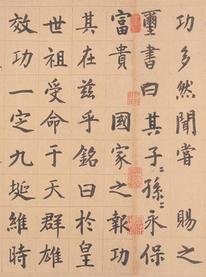 功多然聞嘗 賜之
璽書曰其子〻孫〻永保
富貴 國家之報功
其在茲乎銘曰於皇
世祖受命于天群雄
效功一定九埏維時